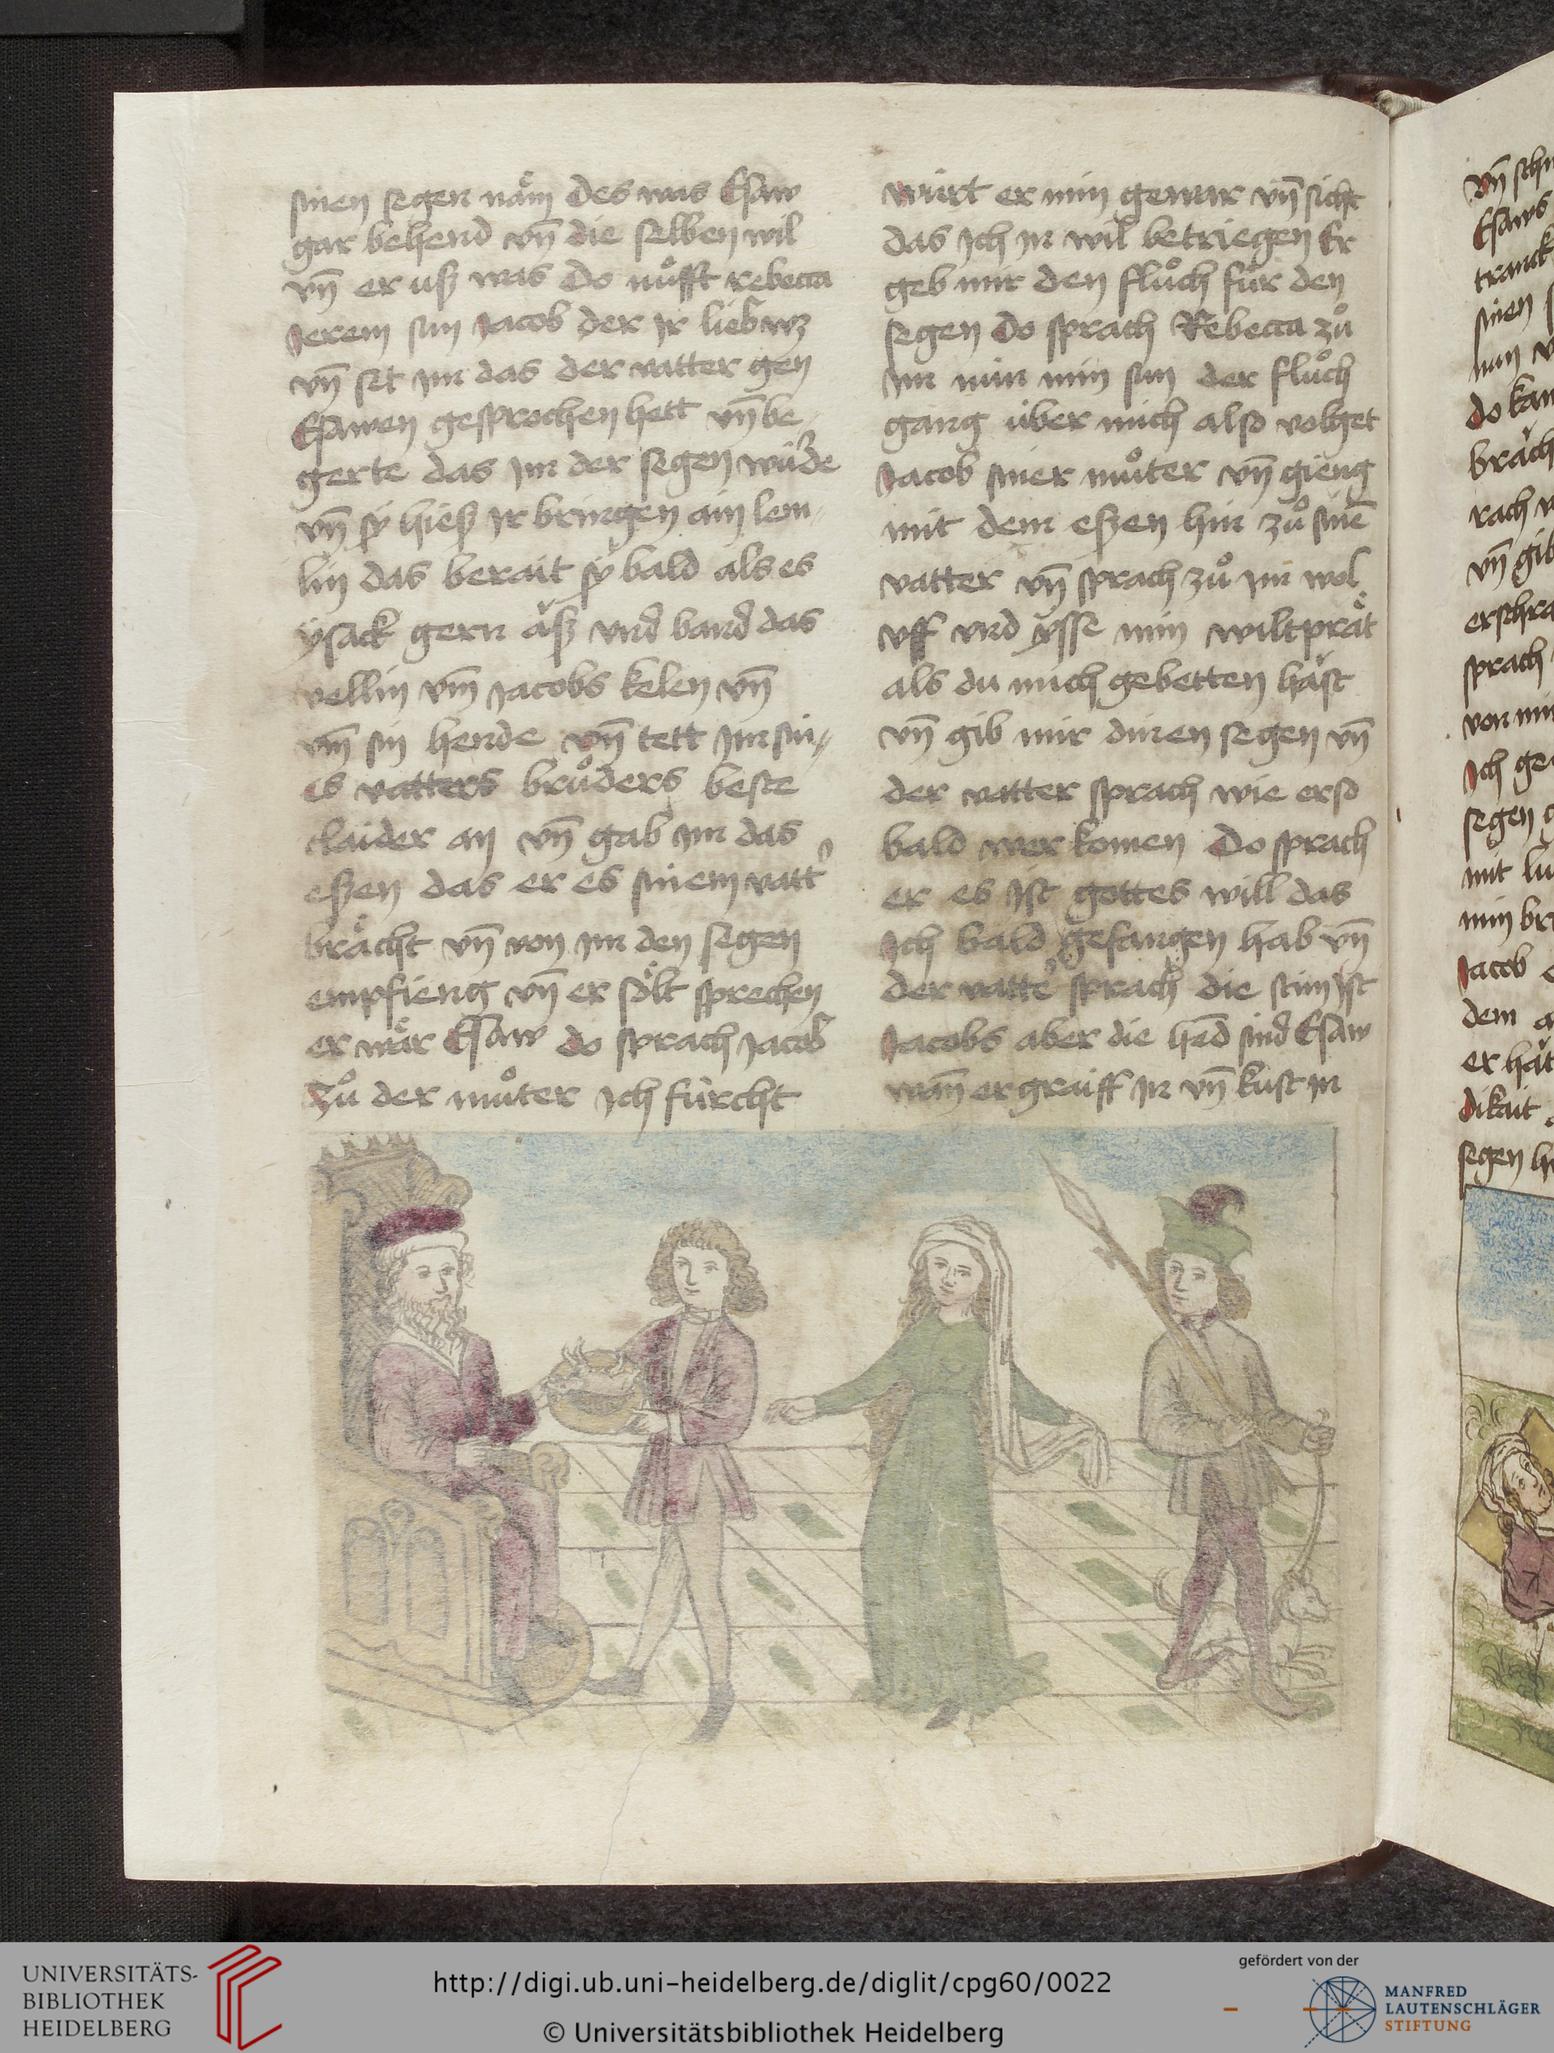 sinen segen näm des was Esaw
gar behend vn̄ die selben wil
vn̄ er usz was do růfft rebecca
Jerem sun Jacob der Jr lieb wz
vn̄ set Jm das der vatter gen
Esawen gesprochen hett vn̄ be-
gerte das Jm der segen würde
vn̄ sy hiesz Jr bringen ain lem-
lin das berait sy bald als es
ysack gern äsz vnd band das
vellin vm̄ Jacobs kelen vn̄
vm̄ sin hende vn̄ tett Jm sin-
es vatters brůders beste
claider an vn̄ gab Jm das
eszen das er es sinem vatt'
brächt vn̄ von Jm den segen
empfieng vn̄ er sölt sprechen
er wär Esaw do sprach Jacob
Zů der můter Jch fürcht
würt er min gewar vn̄ sicht
das Jch Jn wil betriegen Er
geb mir den flůch für den
segen Do sprach Rebecca zů
Jm nun min sun der flůch
gang über mich also volget
Jacob siner můter vn̄ gieng
mit dem eszen hin zů sinē
vatter vn̄ sprach zů Jm wol
vff vnd ysse min wiltprät
als du mich gebetten häst
vn̄ gib mir dinen segen vn̄
der vatter sprach wie er so
bald wer komen Do sprach
er es Jst gottes will das
Jch bald gefangen hab vn̄
der vatte' sprach die stim Jst
Jacobs aber die hend sind Esaw
wan̄ er graiff Jn vn̄ kust Jn
vn̄ sch
Esaws
tranck
sinen
do kam
bräch
rach
vn̄ gib
erschra
sprach
von mir
Jch ge
segen
mit lu
min br
Jacob
dem
er hät
dikait
segen
UNIVERSITÄTS-
BIBLIOTHEK
HEIDELBERG
http://digi.ub.uni-heidelberg.de/diglit/cpg60/0022
© Universitätsbibliothek Heidelberg
gefördert von der
MANFRED
LAUTENSCHLÄGER
STIFTUNG